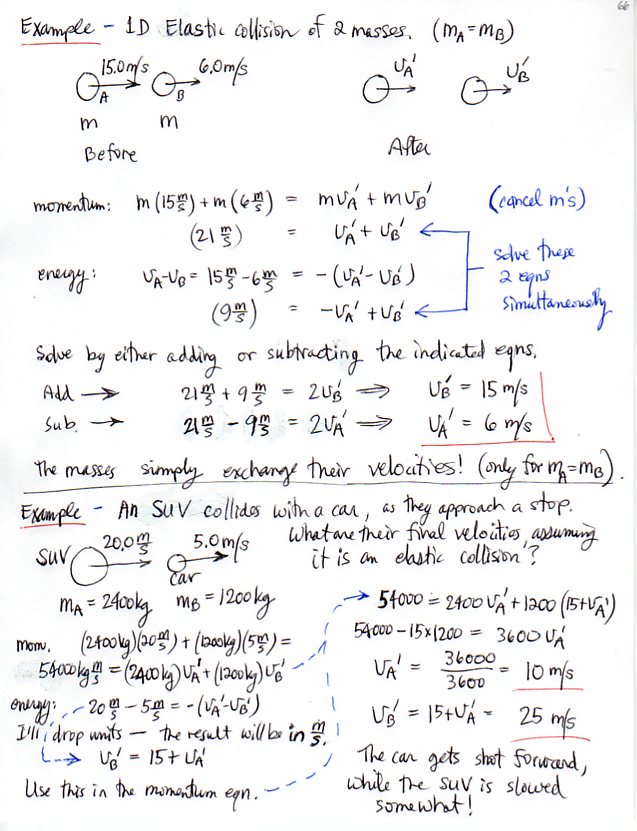 66
Example - 1D Elastic collision of 2 masses. (mA = mB)
15.0 m/s 6.0 m/s vA' vB'
A B
m m
Before After
momentum: m(15 m/s) + m(6 m/s) = mvA' + mvB' (cancel m's)
(21 m/s) = vA' + vB'
solve these
2 eqns
simultaneously
energy: vA-vB = 15 m/s - 6 m/s = -(vA' - vB')
(9 m/s) = -vA' + vB'
Solve by either adding or subtracting the indicated eqns.
Add → 21 m/s + 9 m/s = 2vB' ⇒ vB' = 15 m/s
Sub. → 21 m/s - 9 m/s = 2vA' ⇒ vA' = 6 m/s
The masses simply exchange their velocities! (only for mA = mB).
Example - An SUV collides with a car, as they approach a stop.
What are their final velocities, assuming
it is an elastic collision?
SUV 20.0 m/s 5.0 m/s
car
mA = 2400 kg mB = 1200 kg
mom. (2400 kg)(20 m/s) + (1200 kg)(5 m/s) =
54000 kg m/s = (2400 kg) vA' + (1200 kg) vB'
energy: 20 m/s - 5 m/s = -(vA' - vB')
I'll drop units — the result will be in m/s.
vB' = 15 + vA'
Use this in the momentum eqn.
54000 = 2400 vA' + 1200 (15 + vA')
54000 - 15×1200 = 3600 vA'
vA' = 36000/3600 = 10 m/s
vB' = 15 + vA' = 25 m/s
The car gets shot forward,
while the SUV is slowed
somewhat!